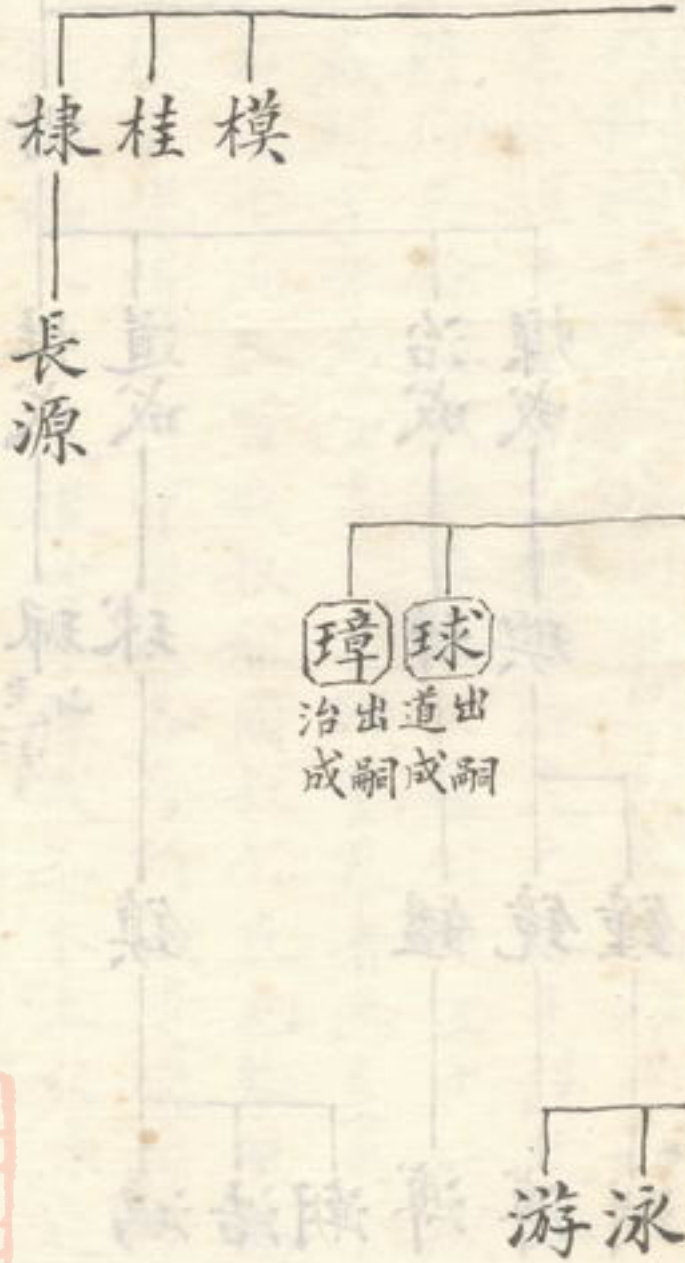 模
桂
棣
長源
球
出嗣
道成
璋
出嗣
治成
泳
游